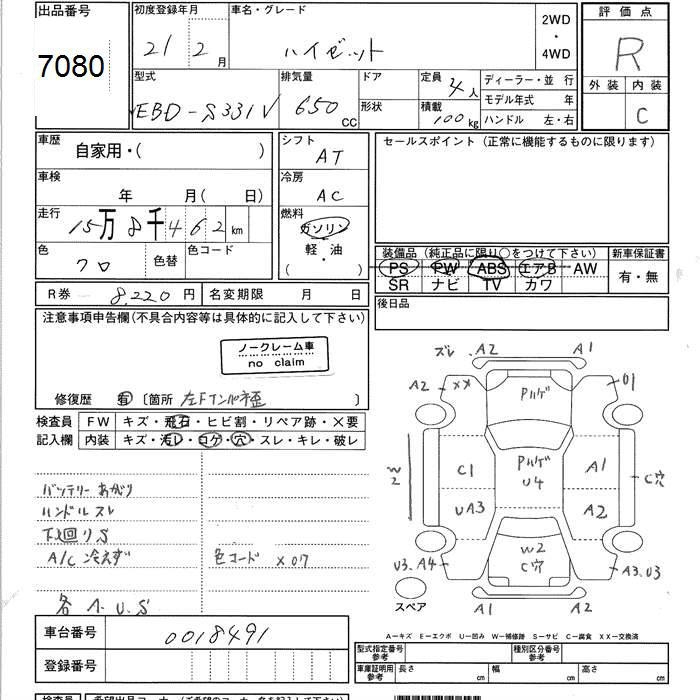 出品番号
7080
初度登録年月
21 2 月
車名・グレード
ハイゼット
2WD
・
4WD
評価点
R
外装 内装
C
型式
EBD-S331V
排気量
650 CC
ドア
形状
定員
4人
積載
100kg
ディーラー・並 行
モデル年式 年
ハンドル 左・右
車歴
自家用・( )
車検
年 月( 日)
走行
15万8千462km
色
クロ
色替
色コード
シフト
AT
冷房
AC
燃料
ガソリン
軽・油
( )
セールスポイント(正常に機能するものに限ります)
装備品(純正品に限り○をつけて下さい)
PS PW ABS エアB AW
SR ナビ TV カワ
新車保証書
有・無
R券 8,220円
名変期限 月 日
後日品
注意事項申告欄(不具合内容等は具体的に記入して下さい)
ノークレーム車
no claim
修復歴 有 〔箇所 左Fインパネ歪 〕
検査員
記入欄
FW キズ・飛石・ヒビ割・リペア跡・×要
内装 キズ・汚レ・コゲ・穴・スレ・キレ・破レ
バッテリーあがり
ハンドルスレ
下廻りS
A/C 冷えず
色コード X07
各A.U.S
車台番号
0018491
登録番号
ズレ A2 A1
A2 XX 01
Pハゲ
Pハゲ
U4
W2
C1 A1 C穴
UA3 A2
W2
C穴
U3.A4 A3.U3
A1 A2
スペア
A—キズ E—エクボ U—凹み W—補修跡 S—サビ C—腐食 XX—交換済
型式指定番号
参考
種別区分番号
参考
車庫証明用
参考
長さ cm 幅 cm 高さ cm